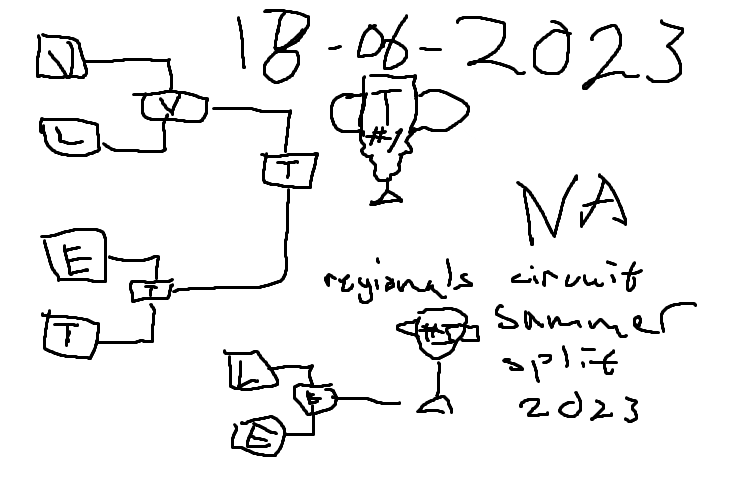 18-06-2023
V
V
L
T
T
#1
NA
E
T
T
regionals circuit
summer
split
2023
L
E
E